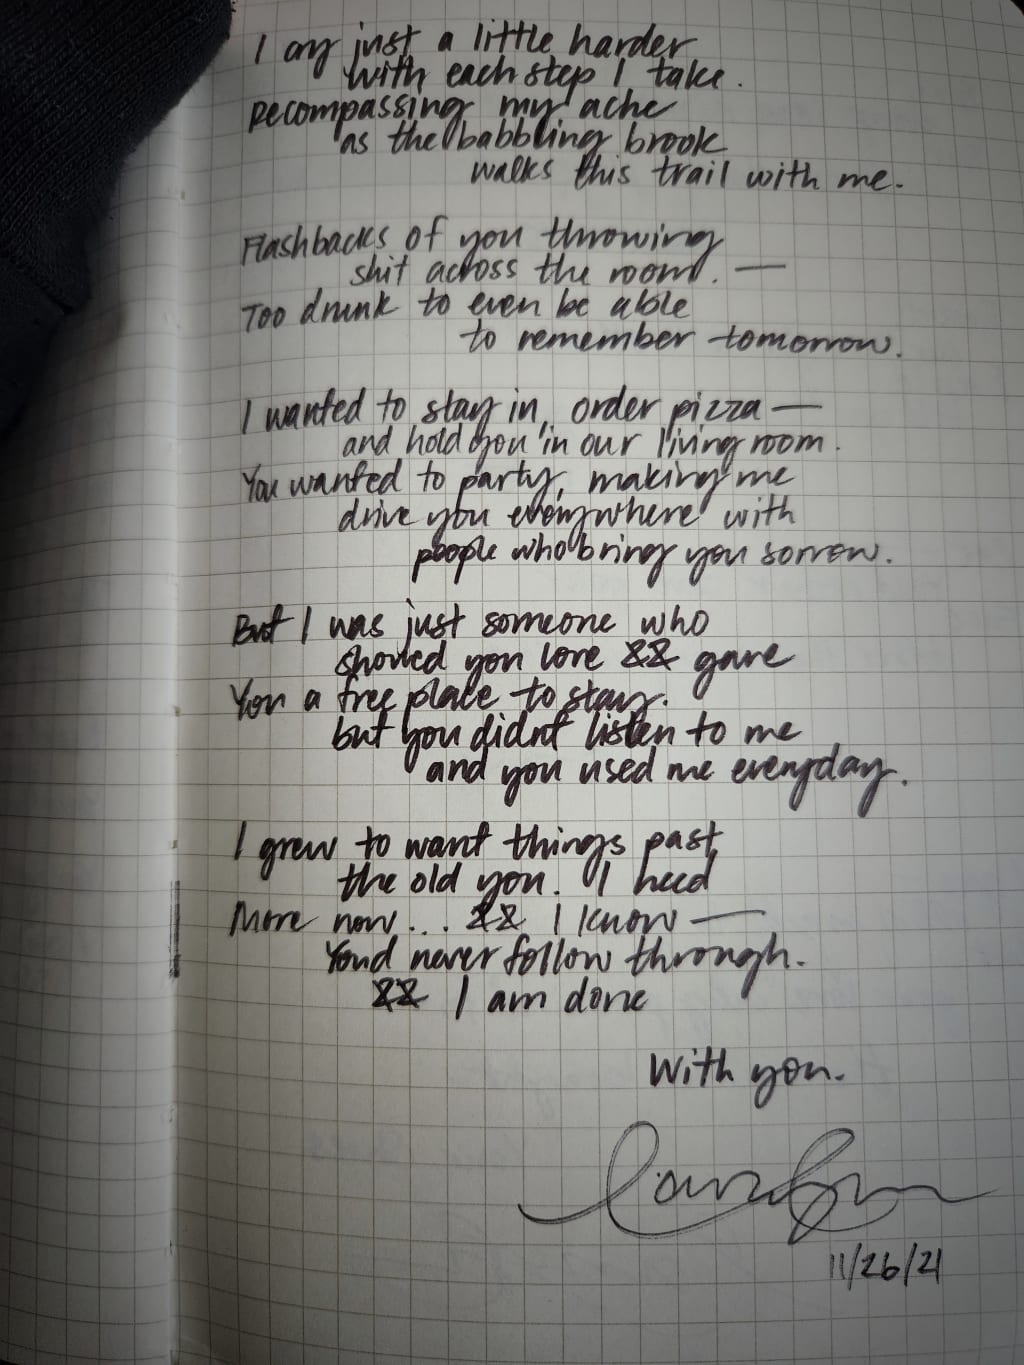 I cry just a little harder
with each step I take.
Decompassing my ache
as the babbling brook
walks this trail with me.
Flashbacks of you throwing
shit across the room. —
Too drunk to even be able
to remember tomorrow.
I wanted to stay in, order pizza —
and hold you in our living room.
You wanted to party, making me
drive you everywhere with
people who bring you sorrow.
But I was just someone who
showed you love && gave
You a free place to stay.
but you didnt listen to me
and you used me everyday.
I grew to want things past
the old you. I need
More now... && I know —
Youd never follow through.
&& I am done
With you.
11/26/21